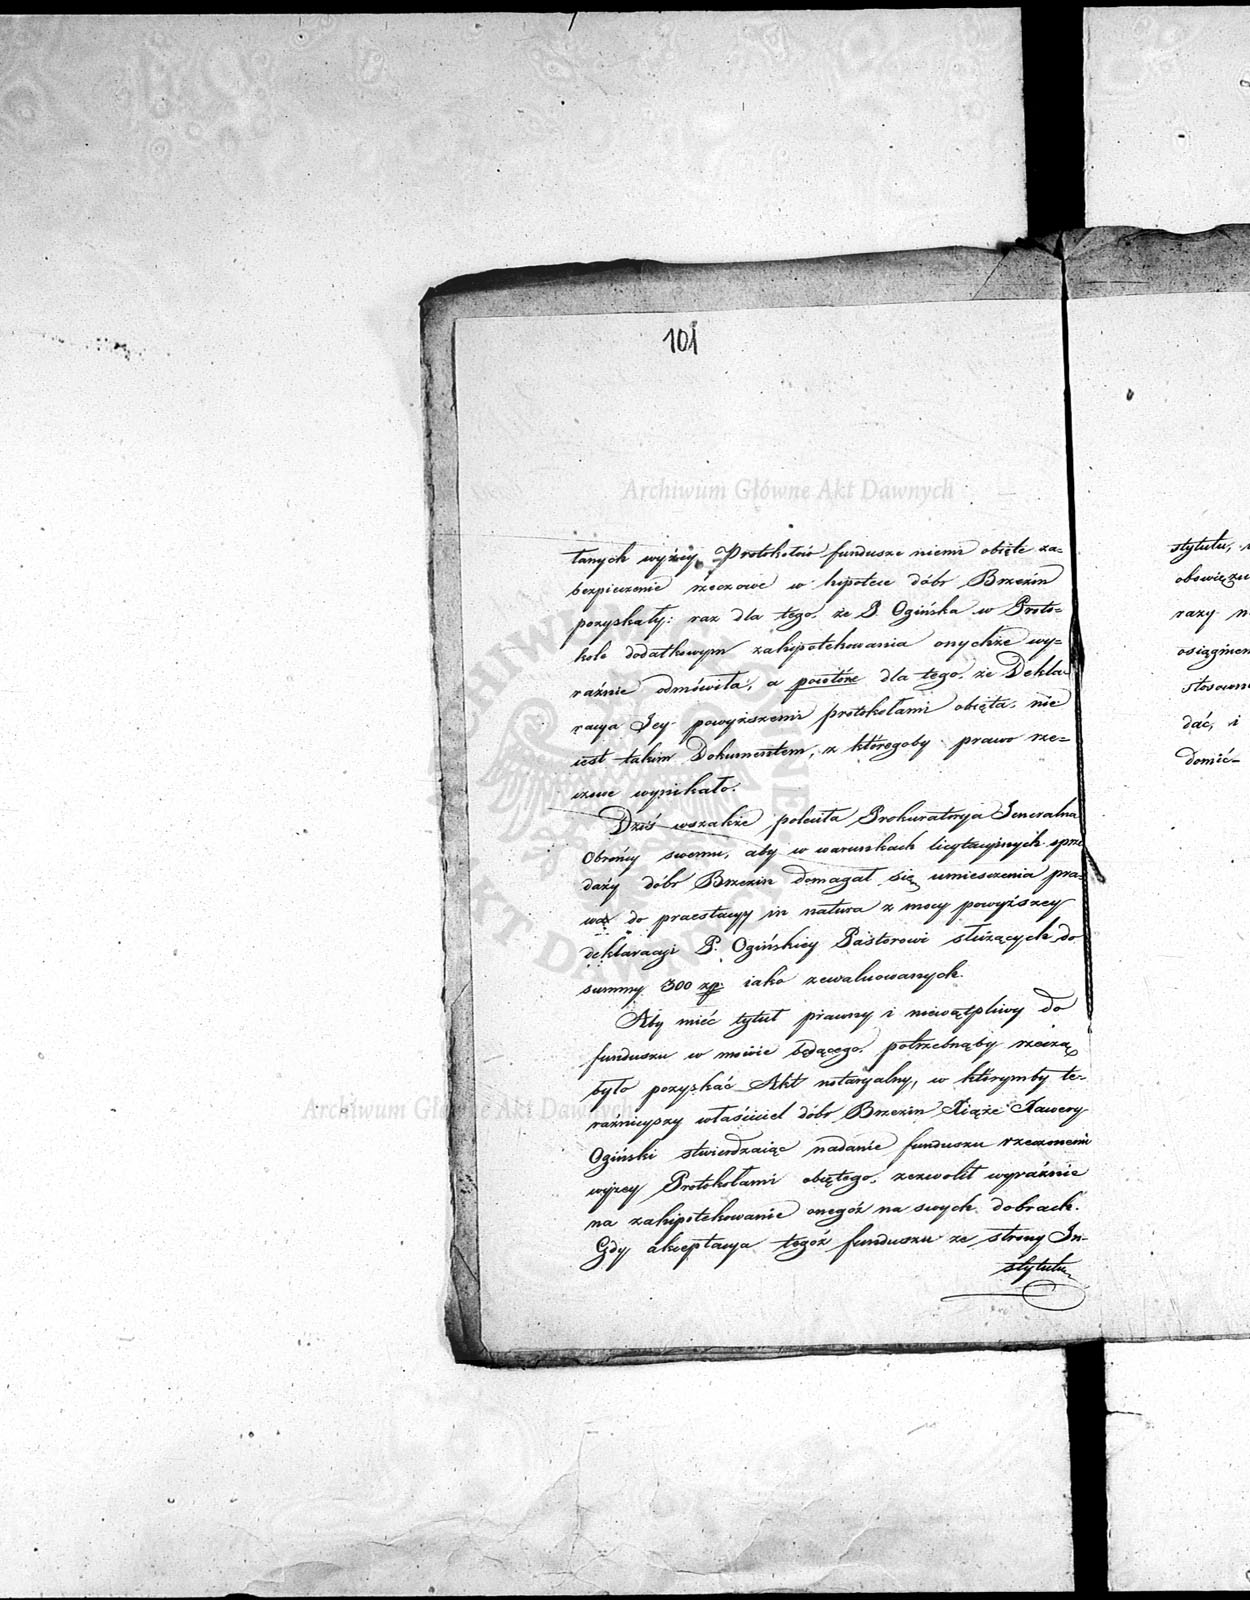 101
Archiwum Główne Akt Dawnych
tanych wyżey Protokołów fundusze niemi obięte za=
bezpieczenie rzeczowe w hipotece dóbr Brzezin
pozyskały: raz dla tego, że P. Ogińska w Proto=
kole dodatkowym zahipotekowania onychże wy=
raźnie odmówiła, a powtóre dla tego, że Dekla
racya Jey powyższemi protokołami obięta, nie
iest takim Dokumentem, z któregoby prawo rze=
czowe wynikało.
Dziś wszakże poleciła Prokuratorya Jeneralna
Obrońcy swemu, aby w warunkach licytacyinych sprze
daży dóbr Brzezin domagał się umieszczenia pra=
wa do praestacyy in natura z mocy powyższey
deklaracyi P. Ogińskiey Pastorowi służących do
summy 300 zp. iako zewaluowanych.
Aby mieć tytuł prawny i niewątpliwy do
funduszu w mowie będącego, potrzebnąby rzeczą
było pozyskać Akt notaryalny, w którymby te=
raznieyszy właściciel dóbr Brzezin Xiąże Xawery
Ogiński stwierdzaiąc nadanie funduszu rzeczonemi
wyżey Protokołami obiętego, zezwolił wyraźnie
na zahipotekowanie onegóż na swych dobrach.
Gdy akceptacya tegóż funduszu ze strony In-
stytutu
Archiwum Główne Akt Dawnych
ARCHIWUM GŁÓWNE AKT DAWNYCH
stytutu,
obowiązu
razy
osiągnien
stosown
dać, i
domić=